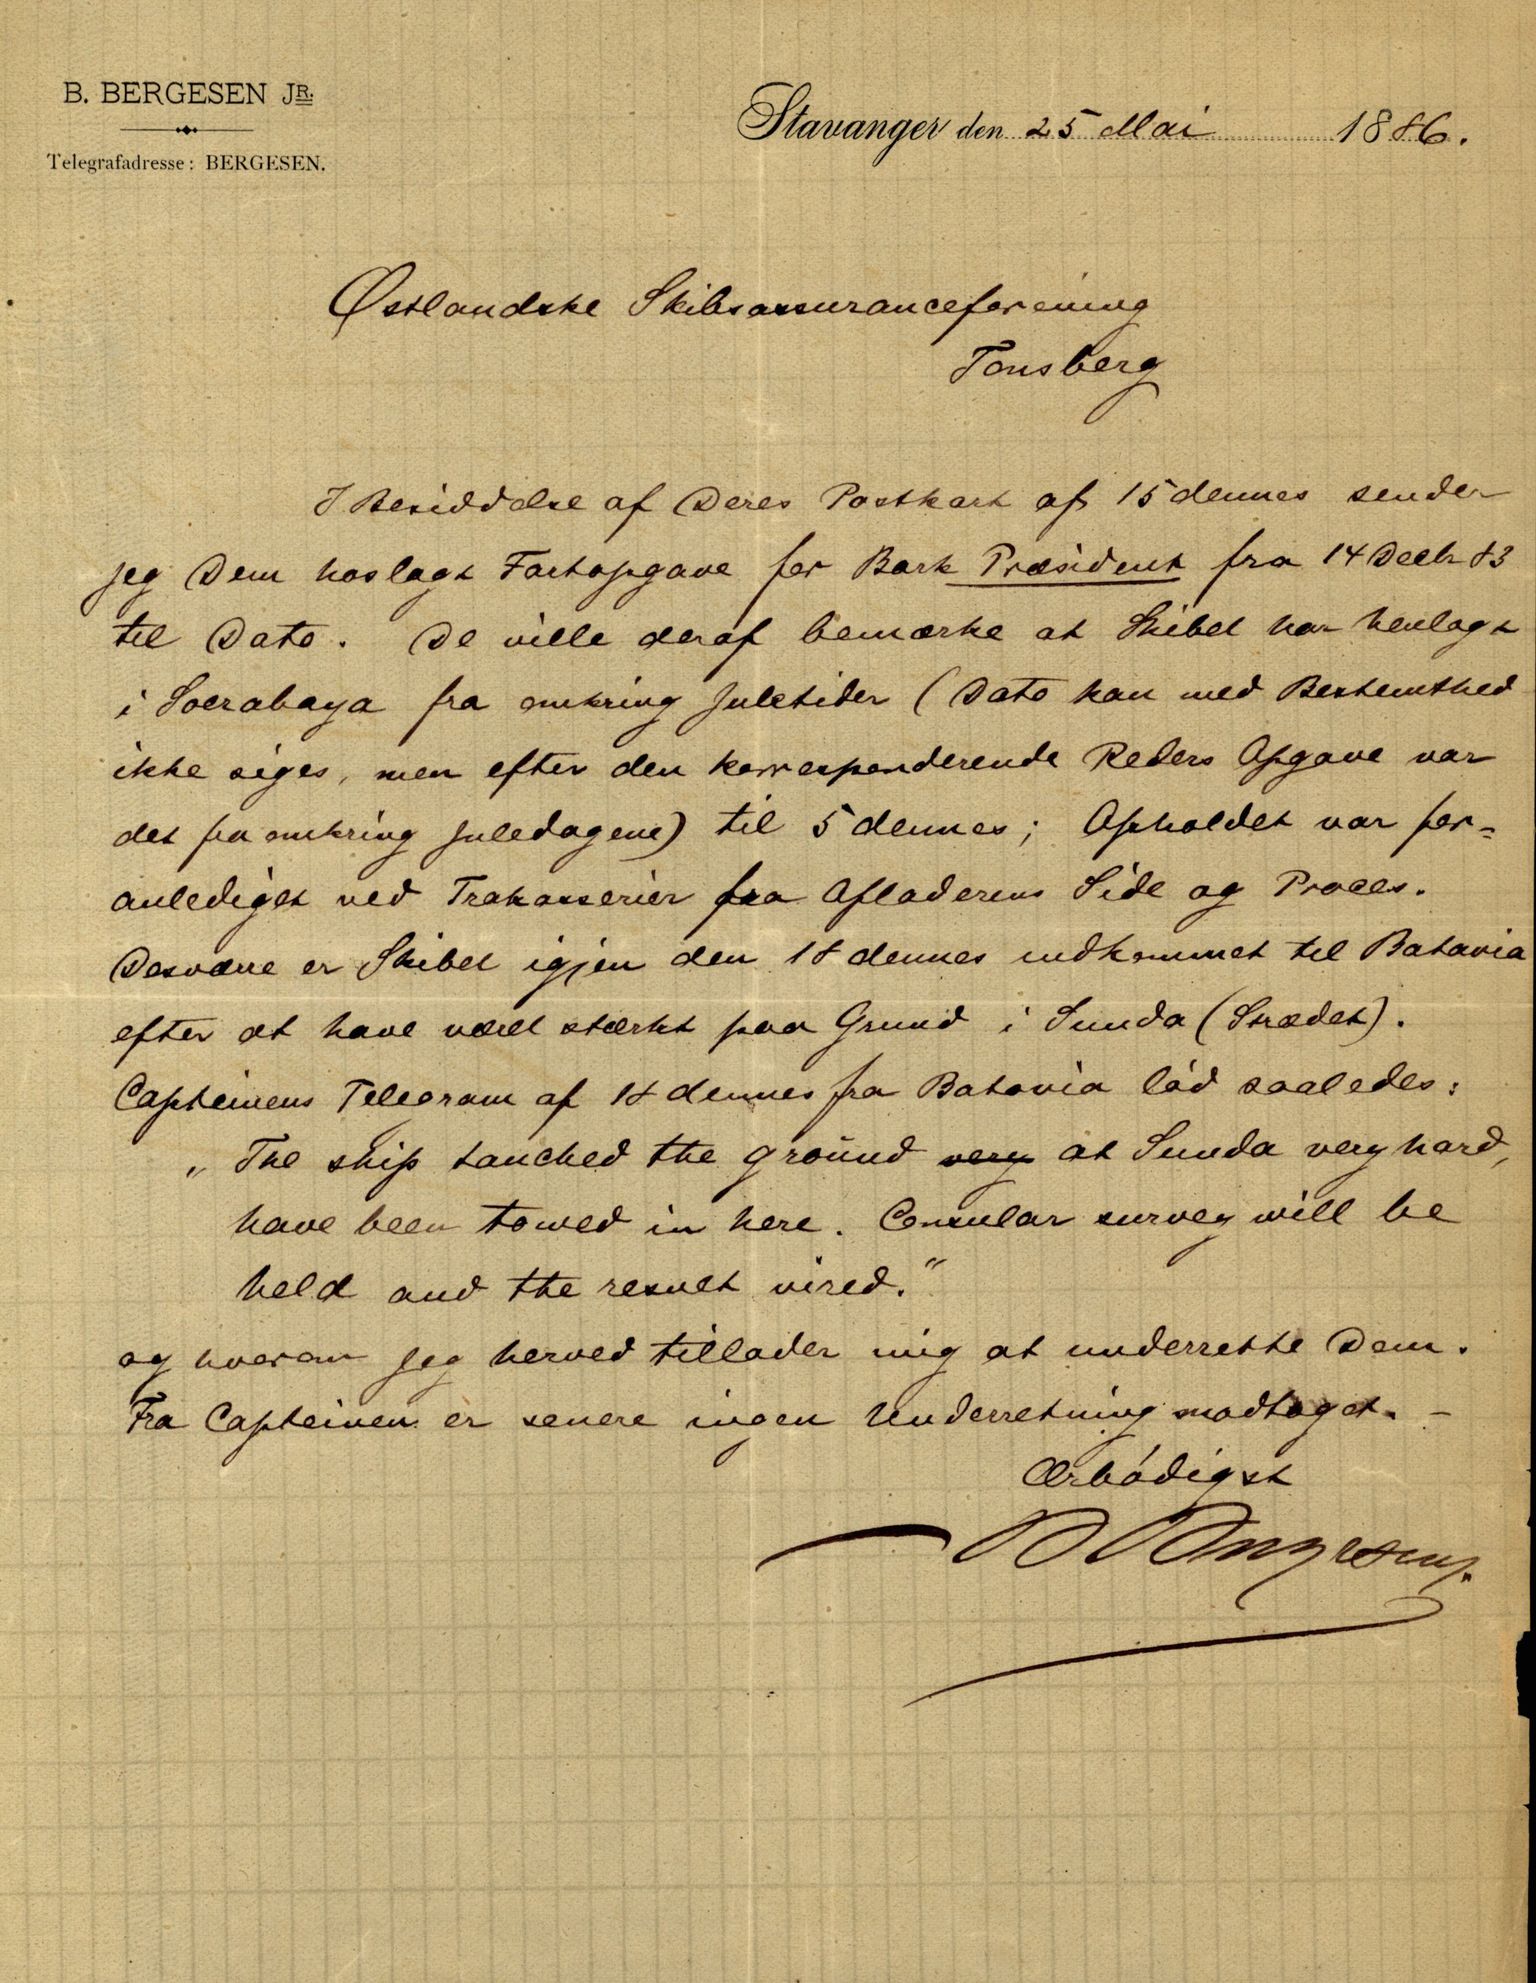 B. BERGESEN JR.
Telegrafadresse: BERGESEN.
Stavanger den 25 Mai 1886.
Østlandske Skibsassuranceforening
Tønsberg
I Besiddelse af Deres Postkort af 15 dennes sender
jeg Dem hoslagt Fartopgave for Bark Præsident fra 14 Decbr 83
til Dato. De ville deraf bemærke at Skibet har henlagt
i Soerabaya fra omkring Juletider (Dato kan med Bestemthed
ikke siges, men efter den korresponderende Reders Opgave var
det fra omkring Juledagene) til 5 dennes; Opholdet var for-
anlediget ved Trakasserier fra Afladerens Side og Proces.
Desværre er Skibet igjen den 18 dennes indkommet til Batavia
efter at have været stærkt paa Grund i Sunda (Strædet).
Capteinens Telegram af 18 dennes fra Batavia lød saaledes:
„The ship touched the ground very at Sunda very hard,
have been towed in here. Consular survey will be
held and the result wired."
og hvorom jeg herved tillader mig at underrette Dem.
Fra Capteinen er senere ingen Underretning modtaget. –
Ærbødigst
B Bergesen Jr.